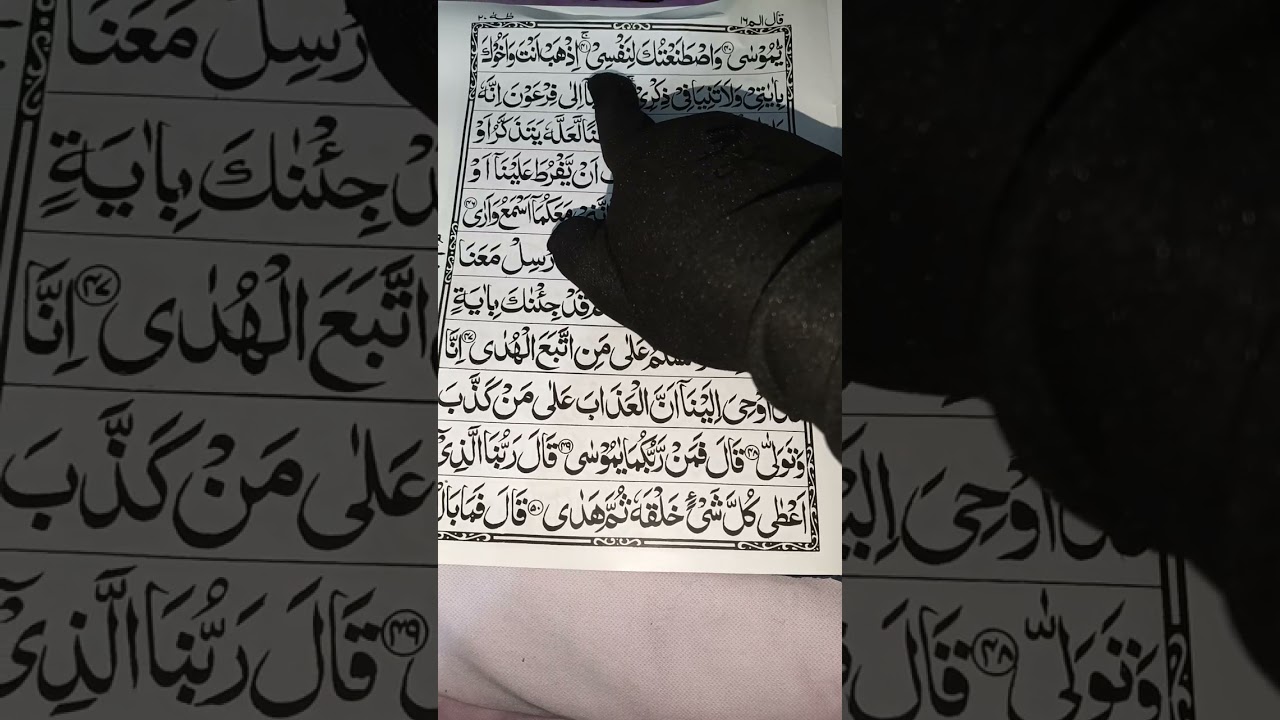 قال الم ١٦ طٰهٰ ٢٠
يّٰمُوْسٰى ۝٤٠ وَاصْطَنَعْتُكَ لِنَفْسِيْ ۝٤١ۚ اِذْهَبْ اَنْتَ وَاَخُوْكَ
بِاٰيٰتِيْ وَلَا تَنِيَا فِيْ ذِكْرِيْ اِلٰى فِرْعَوْنَ اِنَّهٗ
لَّعَلَّهٗ يَتَذَكَّرُ اَوْ
اَنْ يَّفْرُطَ عَلَيْنَاۤ اَوْ
مَعَكُمَاۤ اَسْمَعُ وَاَرٰى ۝٤٦
مَعَنَا
قَدْ جِئْنٰكَ بِاٰيَةٍ
عَلٰى مَنِ اتَّبَعَ الْهُدٰى ۝٤٧ اِنَّا
اُوْحِيَ اِلَيْنَاۤ اَنَّ الْعَذَابَ عَلٰى مَنْ كَذَّبَ
وَتَوَلّٰى ۝٤٨ قَالَ فَمَنْ رَّبُّكُمَا يٰمُوْسٰى ۝٤٩ قَالَ رَبُّنَا الَّذِيْۤ
اَعْطٰى كُلَّ شَيْءٍ خَلْقَهٗ ثُمَّ هَدٰى ۝٥٠ قَالَ فَمَا بَالُ